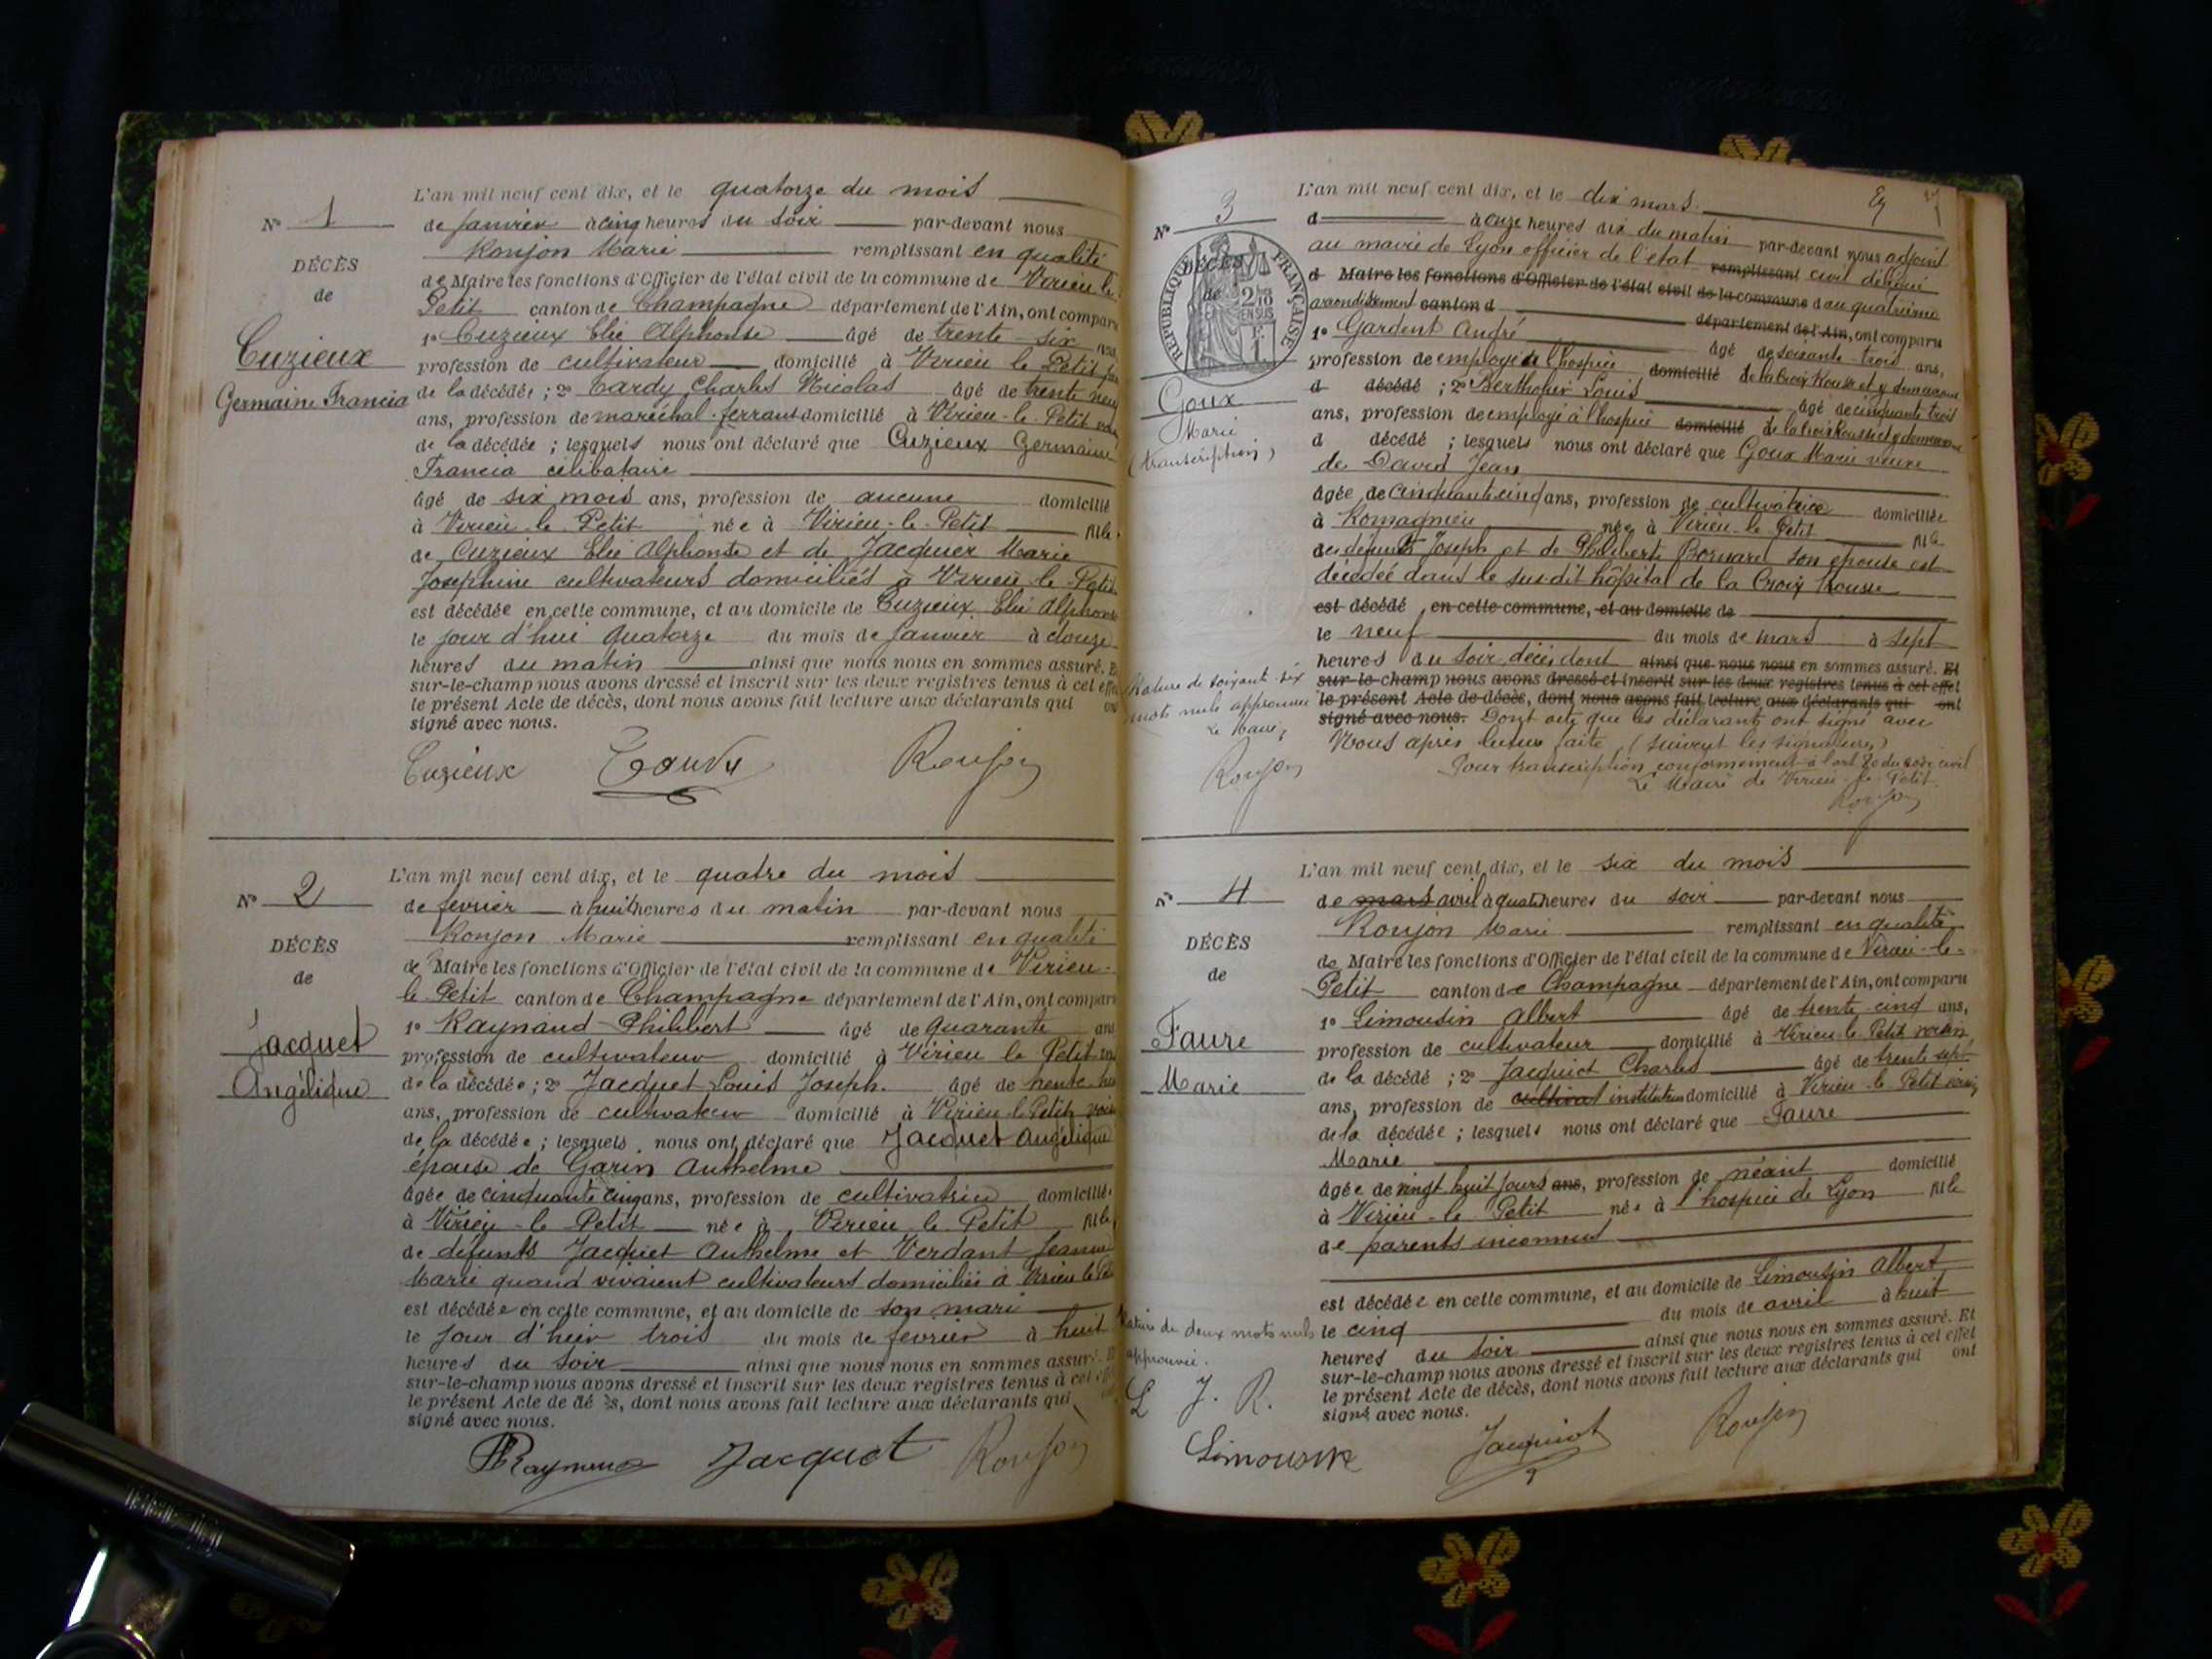 L'an mil neuf cent dix, et le quatorze du mois
N° 1
de Janvier à cinq heures du soir par-devant nous
Roujon Marie remplissant en qualité
DÉCÈS
de
de Maire les fonctions d'Officier de l'état civil de la commune de Virieu le
Petit canton de Champagne département de l'Ain, ont comparu
1° Cuzieux Elie Alphonse âgé de trente-six ans,
Cuzieux
Germaine Francia
profession de cultivateur domicilié à Virieu le Petit
de la décédée ; 2° Tardy Charles Nicolas âgé de trente neuf
ans, profession de maréchal-ferrant domicilié à Virieu-le-Petit
de la décédée ; lesquels nous ont déclaré que Cuzieux Germaine
Francia célibataire
âgé de six mois ans, profession de aucune domicilié
à Virieu-le-Petit née à Virieu-le-Petit fille
de Cuzieux Elie Alphonse et de Jacquier Marie
Josephine cultivateurs domiciliés à Virieu-le-Petit
est décédée en cette commune, et au domicile de Cuzieux Elie Alphonse
le jour d'hui quatorze du mois de Janvier à douze
heures du matin ainsi que nous nous en sommes assuré. Et
sur-le-champ nous avons dressé et inscrit sur les deux registres tenus à cet effet
le présent Acte de décès, dont nous avons fait lecture aux déclarants qui ont
signé avec nous.
Cuzieux Tardy Roujon
L'an mil neuf cent dix, et le quatre du mois
N° 2
de fevrier à huit heures du matin par-devant nous
Roujon Marie remplissant en qualité
DÉCÈS
de
de Maire les fonctions d'Officier de l'état civil de la commune de Virieu-
le Petit canton de Champagne département de l'Ain, ont comparu
1° Raynaud Philibert âgé de quarante ans
Jacquet
Angélique
profession de cultivateur domicilié à Virieu le Petit
de la décédée ; 2° Jacquet Louis Joseph. âgé de trente
ans, profession de cultivateur domicilié à Virieu-le-Petit
de la décédée ; lesquels nous ont déclaré que Jacquet Angélique
épouse de Garin Anthelme
âgée de cinquante cinq ans, profession de cultivatrice domicilié
à Virieu-le-Petit née à Virieu le Petit fille
de défunts Jacquet Anthelme et Verdant Jeanne
Marie quand vivaient cultivateurs domiciliés à Virieu le
est décédée en cette commune, et au domicile de son mari
le jour d'hier trois du mois de fevrier à huit
heures du soir ainsi que nous nous en sommes assuré. Et
sur-le-champ nous avons dressé et inscrit sur les deux registres tenus à cet effet
le présent Acte de décès, dont nous avons fait lecture aux déclarants qui
signé avec nous.
Raynaud Jacquet Roujon
L'an mil neuf cent dix, et le dix mars.
N° 3
d à onze heures dix du matin par-devant nous adjoint
au maire de Lyon officier de l'état remplissant civil délégué
DÉCÈS
de
RÉPUBLIQUE FRANÇAISE
2/10 EN SUS
d Maire les fonctions d'Officier de l'état civil de la commune d au quatrième
arrondissement canton d département de l'Ain, ont comparu
1° Gardent André âgé de soixante-trois ans,
profession de employé de l'hospice domicilié de la Croix Rousse et y demeurant
Goux
Marie
(transcription)
d décédé ; 2° Bertholier Louis âgé de cinquante trois
ans, profession de employé à l'hospice domicilié de la Croix Rousse et y demeurant
d décédé ; lesquels nous ont déclaré que Goux Marie veuve
de David Jean
âgée de cinquante cinq ans, profession de cultivatrice domiciliée
à Romagnieu née à Virieu-le-Petit fille
des défunts Joseph et de Philiberte Bornard son épouse est
décédée dans le susdit hôpital de la Croix Rousse
est décédé, en cette commune, et au domicile de
le neuf du mois de mars à sept
heures du soir décès dont ainsi que nous nous en sommes assuré. Et
sur-le-champ nous avons dressé et inscrit sur les deux registres tenus à cet effet
le présent Acte de décès, dont nous avons fait lecture aux déclarants qui ont
signé avec nous. Dont acte que les déclarants ont signé avec
Nous après lecture faite (suivent les signatures)
Pour transcription conformément à l'art 80 du code civil
Le Maire de Virieu-le-Petit.
Roujon
Rature de soixante-six
mots nuls approuvée
Le Maire,
Roujon
L'an mil neuf cent dix, et le six du mois
N° 4
de mars avril à quatre heures du soir par-devant nous
Roujon Marie remplissant en qualité
DÉCÈS
de
de Maire les fonctions d'Officier de l'état civil de la commune de Virieu-le-
Petit canton de Champagne département de l'Ain, ont comparu
1° Limousin Albert âgé de trente-cinq ans,
Faure
Marie
profession de cultivateur domicilié à Virieu-le-Petit voisin
de la décédé ; 2° Jacquiot Charles âgé de trente sept
ans, profession de cultivat instituteur domicilié à Virieu-le-Petit voisin
de la décédée ; lesquels nous ont déclaré que Faure
Marie
âgée de vingt huit jours ans, profession de néant domicilié
à Virieu-le-Petit née à l'hospice de Lyon fille
de parents inconnus
est décédée en cette commune, et au domicile de Limousin Albert
le cinq du mois de avril à huit
heures du soir ainsi que nous nous en sommes assuré. Et
sur-le-champ nous avons dressé et inscrit sur les deux registres tenus à cet effet
le présent Acte de décès, dont nous avons fait lecture aux déclarants qui ont
signé avec nous.
Rature de deux mots nuls
approuvée.
L J. R.
Limousin Jacquiot Roujon